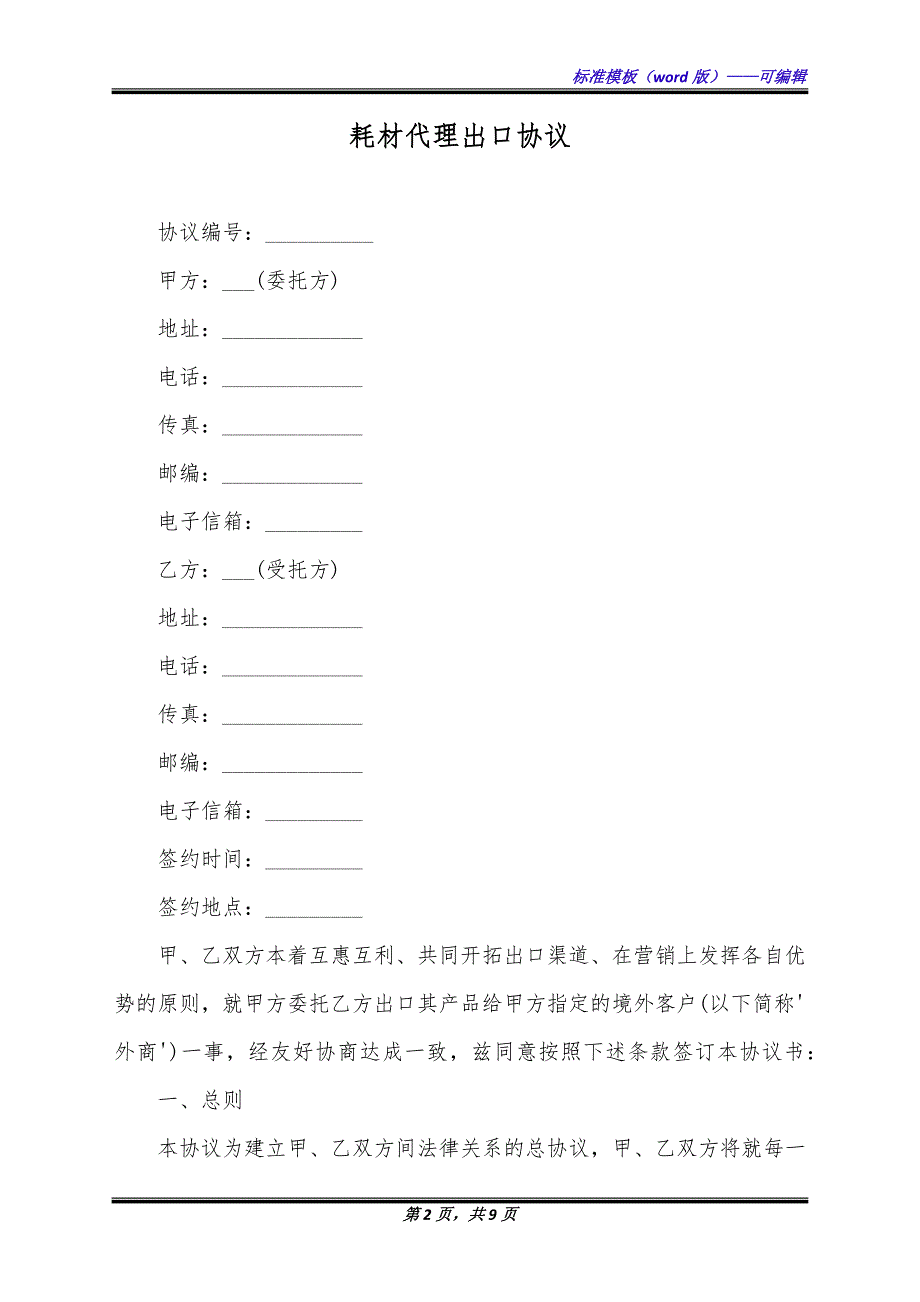 标准模板（word 版）——可编辑
耗材代理出口协议
协议编号：__________
甲方：___(委托方)
地址：_____________
电话：_____________
传真：_____________
邮编：_____________
电子信箱：_________
乙方：___(受托方)
地址：_____________
电话：_____________
传真：_____________
邮编：_____________
电子信箱：_________
签约时间：_________
签约地点：_________
甲、乙双方本着互惠互利、共同开拓出口渠道、在营销上发挥各自优
势的原则，就甲方委托乙方出口其产品给甲方指定的境外客户(以下简称'
外商')一事，经友好协商达成一致，兹同意按照下述条款签订本协议书：
一、总则
本协议为建立甲、乙双方间法律关系的总协议，甲、乙双方将就每一
第 2 页，共 9 页